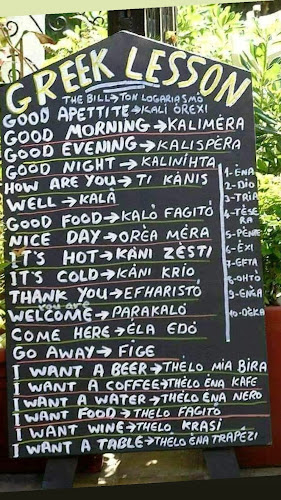 GREEK LESSON
THE BILL→TON LOGARIASMÓ
GOOD APETTITE→KALÍ ÓREXI
GOOD MORNING→KALIMÉRA
GOOD EVENING→KALISPÉRA
GOOD NIGHT→KALINÍHTA
HOW ARE YOU→TI KÁNIS
WELL→KALÁ
GOOD FOOD→KALÓ FAGITÓ
NICE DAY→ORÉA MÉRA
IT'S HOT→KÁNI ZÉSTI
IT'S COLD→KÁNI KRÍO
THANK YOU→EFHARISTÓ
WELCOME→PARAKALÓ
COME HERE→ÉLA EDÓ
GO AWAY→FÍGE
I WANT A BEER→THÉLO MIA BÍRA
I WANT A COFFEE→THÉLO ÉNA KAFÉ
I WANT A WATER→THÉLO ÉNA NERÓ
I WANT FOOD→THÉLO FAGITÓ
I WANT WINE→THÉLO KRASÍ
I WANT A TABLE→THÉLO ÉNA TRAPÉZI
1-ÉNA
2-DÍO
3-TRÍA
4-TÉSE
RA
5-PÉNTE
6-ÉXI
7-EFTÁ
8-OHTÓ
9-ENÉA
10-DÉKA